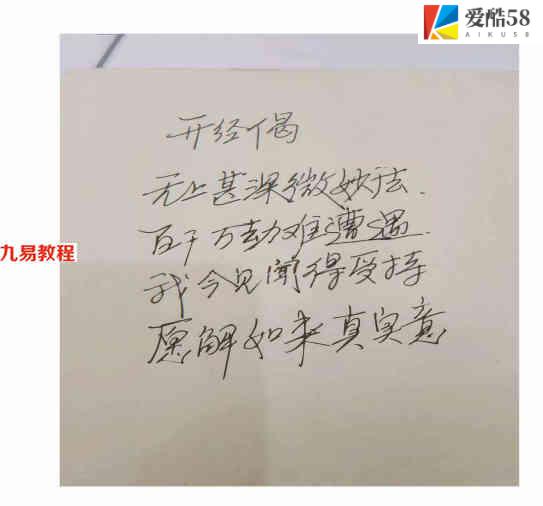 爱酷58
AIKU58
开经偈
无上甚深微妙法.
百千万劫难遭遇.
九易教程
我今见闻得受持
愿解如来真实意